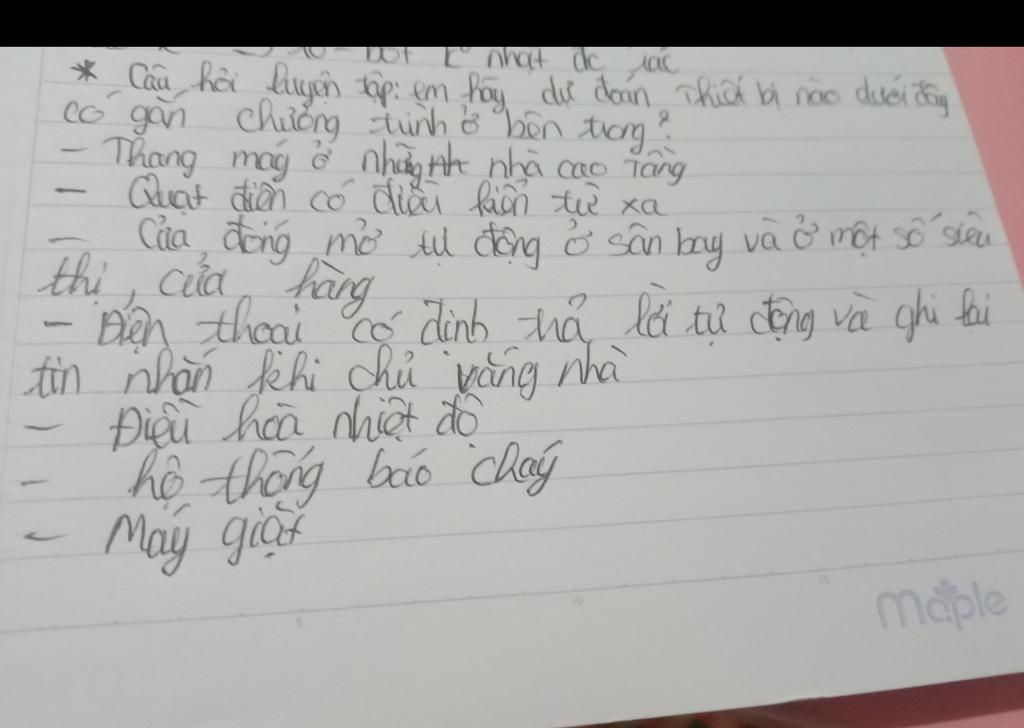 bót nhạt dc rác
* Câu hỏi luyện tập: em hãy dự đoán thiết bị nào dưới đây
có gắn chương trình ở bên trong?
- Thang máy ở những nhà cao tầng
- Quạt điện có điều kiển từ xa
- Cửa đóng mở tự động ở sân bay và ở một số siêu
thị, cửa hàng
- Điện thoại cố định trả lời tự động và ghi lại
tin nhắn khi chủ vắng nhà
- Điều hoà nhiệt độ
- hệ thống báo cháy
- Máy giặt
5 10 15
maple